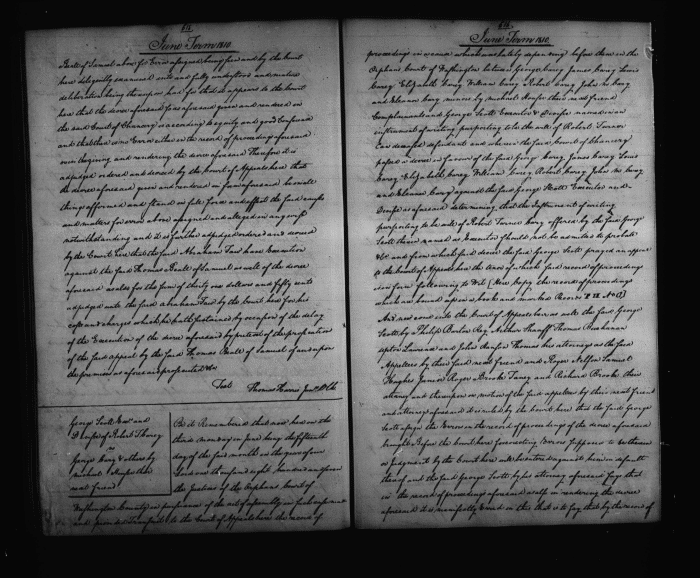 June Term 1810
Beall of Samuel above for Error assigned being find and by the Court
here diligently examined into and fully understood and mature
deliberation being thereupon had for that it appears to the Court
here that the decree aforesaid so as aforesaid given and rendered in
the said Court of Chancery is according to equity and good Conscience
and that there is no Error either in the record of proceedings aforesaid
or in the giving and rendering the decree aforesaid Therefore it is
adjudged ordered and decreed by the Court of Appeals here that
the decree aforesaid given and rendered in form aforesaid be in all
things affirmed and stand in full force and effect the said causes
and matters for error above assigned and alleged in any wise
notwithstanding and it is further adjudged ordered and decreed
by the Court here that the said Abraham Faw have Execution
against the said Thomas Beall of Samuel as well of the decree
aforesaid as also for the sum of thirty six dollars and fifty cents
adjudged unto the said Abraham Faw by the Court here for his
costs and charges which he hath sustained by occasion of the delay
of the Execution of the decree aforesaid by pretext of the prosecution
of the said appeal by the said Thomas Beall of Samuel of and upon
the premises as aforesaid prosecuted &c
Test Thomas Harris Junr Clk
George Scott Exr and
Devisee of Robert Turner
vs
George Carey & others by
michael next friend
Be it Remembered that now here on the
third monday in June being the eighteenth
day of the said month in the year of our
Lord one thousand eight hundred and ten
the Justices of the Orphans Court of
Washington County in pursuance of the act of assembly in such case
and provided transmitted to the Court of Appeals here the record of
June Term 1810
proceedings in a cause which was lately depending before them in the
Orphans Court of Washington between George Carey James Carey Lewis
Carey Elizabeth Carey William Carey Robert Carey John Carey
and Eleanor Carey minors by michael their next friend
Complainants and George Scott Executor & Devisee named in an
instrument of writing purporting to be the will of Robert Turner
deceased defendant and wherein the said Court of Chancery
passed a decree in favour of the said George Carey James Carey Lewis
Carey Elizabeth Carey William Carey Robert Carey John Carey
and Eleanor Carey against the said George Scott Executor and
Devisee as aforesaid determining that the instrument of writing
purporting to be will of Robert Turner being offered by the said George
Scott therein named as Executor should not be admitted to probate
&c and from which said decree the said George Scott prayed an appeal
to the Court of Appeals here the tenor of which said record of proceedings
is in form following to Wit [Here Copy the record of proceedings
which are bound up in a book and marked Record
And now come into the Court of Appeals here as well the said George
Scott by Philip Barton Key Arthur Shaaff Thomas Buchanan
Upton Lawrence and John Hanson Thomas his attorneys as the said
Appellees by their said next friend and Roger Nelson Samuel
Hughes James Roger Brooke Taney and Richard Brooke their
attorneys and thereupon on motion of the said appellees by their next friend
and attorneys aforesaid it is ruled by the Court here that the said George
Scott assign the Errors in the record of proceedings of the decree aforesaid
brought before the Court here for correcting Errors supposed to be therein
or judgment by the Court here will be entered against him in default
thereof and the said George Scott by his attorneys aforesaid says that
in the record of proceedings aforesaid as also in rendering the decree
aforesaid it is manifestly Erred in this that is to say that by the record of